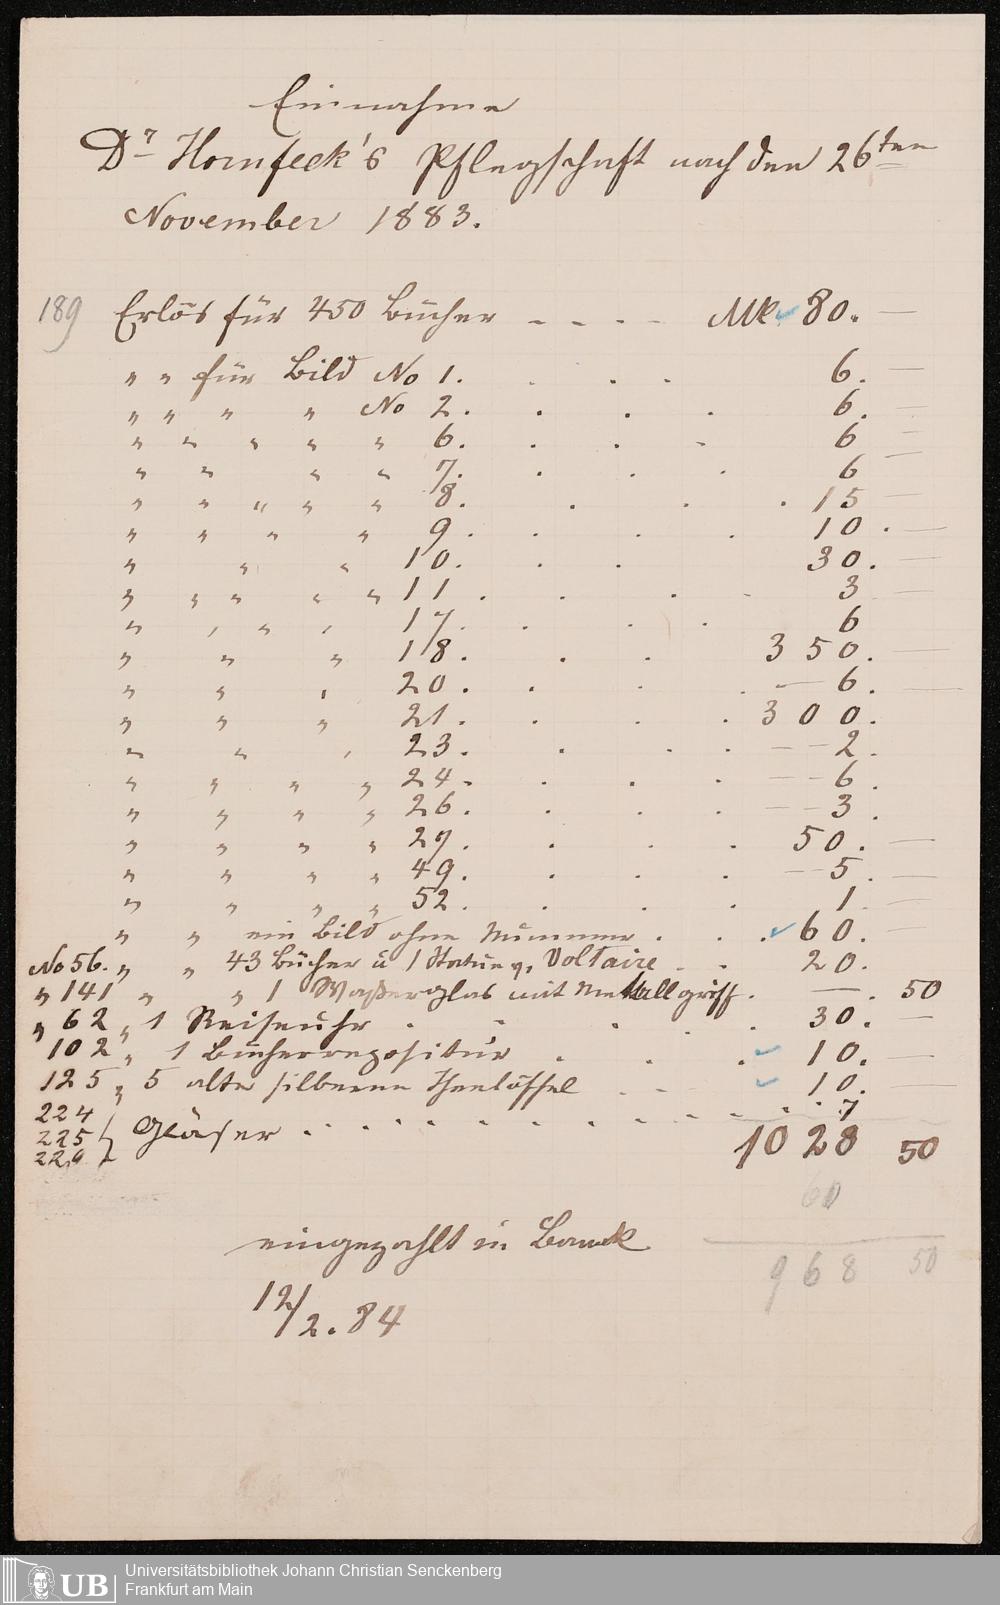 Einnahme
Dr Hornfeck's Pflegschaft nach den 26ten
November 1883.
189 Erlös für 450 Bücher - - - - Mk 80. —
" " für Bild No 1. . . . 6. —
" " " " No 2. . . . 6. —
" " " " " 6. . . - 6 —
" " " " 7. . . . 6 —
" " " " " 8. . . . 15 —
" " " " 9. . . . 10. —
" " " 10. . . 30. —
" " " " " 11. . . - 3 —
" " " " 17. . . . 6
" " " 18. . . 350. —
" " " 20. . . . — 6. —
" " " 21. . . . 300.
" " " 23. . . . — — 2.
" " " " 24. . . . — — 6.
" " " " 26. . . . — — 3.
" " " " 27. . . . 50. —
" " " " 49. . . . — 5. —
" " " " 52. . . . 1. —
" " ein Bild ohne Nummer . . . 60. —
No 56. " " 43 Bücher u 1 Statue v. Voltaire . . 20.
" 141 " " 1 Waßerglas mit Metallgriff. — . 50
" 62 " 1 Reiseuhr . . . . . 30. —
102 " 1 Bücherrepositur . . . 10. —
125 " 5 alte silberne Theelöffel - - 10.
224
225 } Gläser . . . . . . . . . 7
229
1028 50
60
eingezahlt in Bank
968 50
12/2. 84
Universitätsbibliothek Johann Christian Senckenberg
Frankfurt am Main
UB